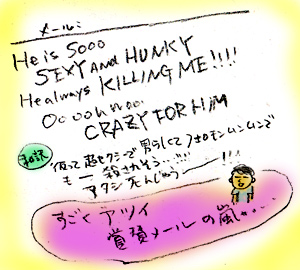 メール:
He is Sooo
SEXY AND HUNKY
He always KILLING ME!!!!
Oooohhhoo
CRAZY FOR HIM
和訳
彼って超セクシーで男らしくてフェロモンムンムンで
もー殺されそう…!!!
アタシ死んじゃうー!!!
すごくアツイ
賞賛メールの嵐が…